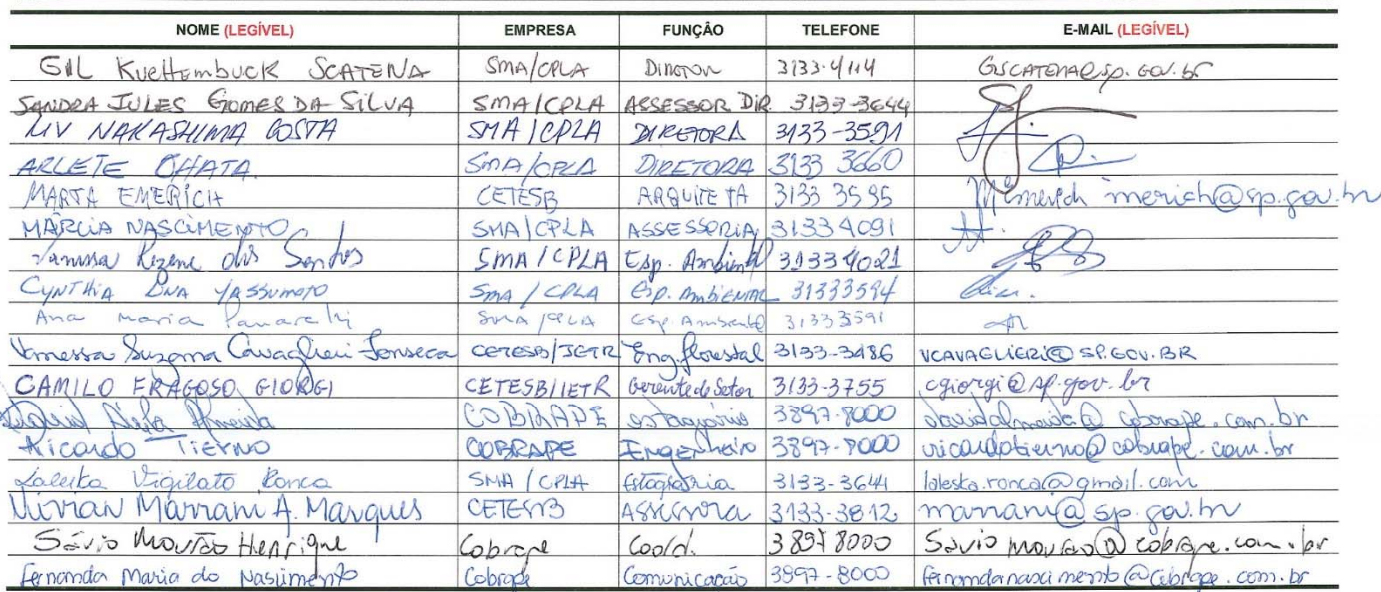 NOME (LEGÍVEL) EMPRESA FUNÇÃO TELEFONE E-MAIL (LEGÍVEL)
GIL KUCHEMBUCK SCATENA SMA/CPLA DIRETOR 3133-4114 GSCATENA@SP.GOV.br
SANDRA JULES GOMES DA SILVA SMA/CPLA ASSESSOR DIR. 3133-3644
LIV NAKASHIMA COSTA SMA/CPLA DIRETORA 3133-3591
ARLETE OHATA SMA/CPLA DIRETORA 3133 3660
MARTA EMERICH CETESB ARQUITETA 3133 3595 merich@sp.gov.br
MÁRCIA NASCIMENTO SMA/CPLA ASSESSORIA 31334091
Vanessa Rezene dos Santos SMA/CPLA Esp. Ambiental 31334021
CYNTHIA YASSUMOTO SMA/CPLA Esp. AMBIENTAL 31333594
Ana maria SMA/CPLA Esp Ambiental 31333591
Vanessa Suzana Cavaglieri Fonseca CETESB/IETR Eng. florestal 3133-3486 VCAVAGLIERI@SP.GOV.BR
CAMILO FRAGOSO GIORGI CETESB/IETR Gerente de Setor 3133-3755 cgiorgi@sp.gov.br
Almeida COBRAPE estagiário 3897-8000 davidalmeida@cobrape.com.br
Ricardo TIERNO COBRAPE Engenheiro 3897-8000 ricardotierno@cobrape.com.br
Laleska Vigilato Ronca SMA/CPLA Estagiária 3133-3644 laleska.ronca@gmail.com
Mirian Marrani A. Marques CETESB Assessora 3133-3812 marrani@sp.gov.br
Sávio Mourão Henrique Cobrape Coord. 3897 8000 Sávio mourão@cobrape.com.br
Fernanda Maria do Nascimento Cobrape Comunicação 3897-8000 fernandanascimento@cobrape.com.br